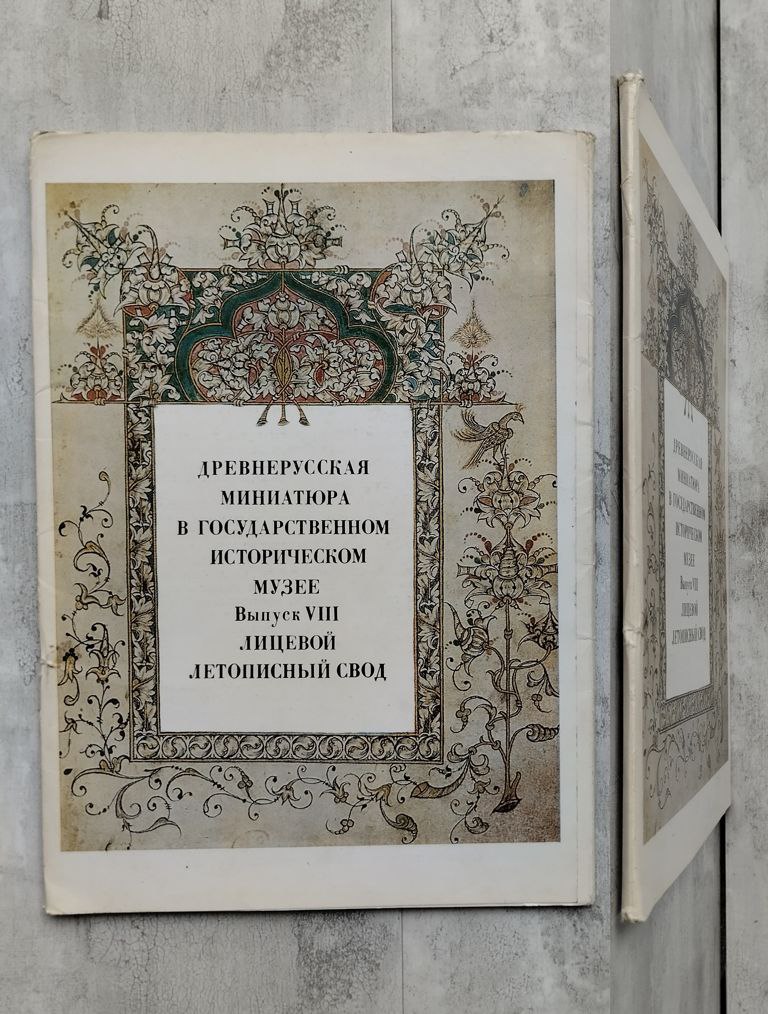 ДРЕВНЕРУССКАЯ
МИНИАТЮРА
В ГОСУДАРСТВЕННОМ
ИСТОРИЧЕСКОМ
МУЗЕЕ
Выпуск VIII
ЛИЦЕВОЙ
ЛЕТОПИСНЫЙ СВОД
ДРЕВНЕРУССКАЯ
МИНИАТЮРА
В ГОСУДАРСТВЕННОМ
ИСТОРИЧЕСКОМ
МУЗЕЕ
Выпуск VIII
ЛИЦЕВОЙ
ЛЕТОПИСНЫЙ СВОД